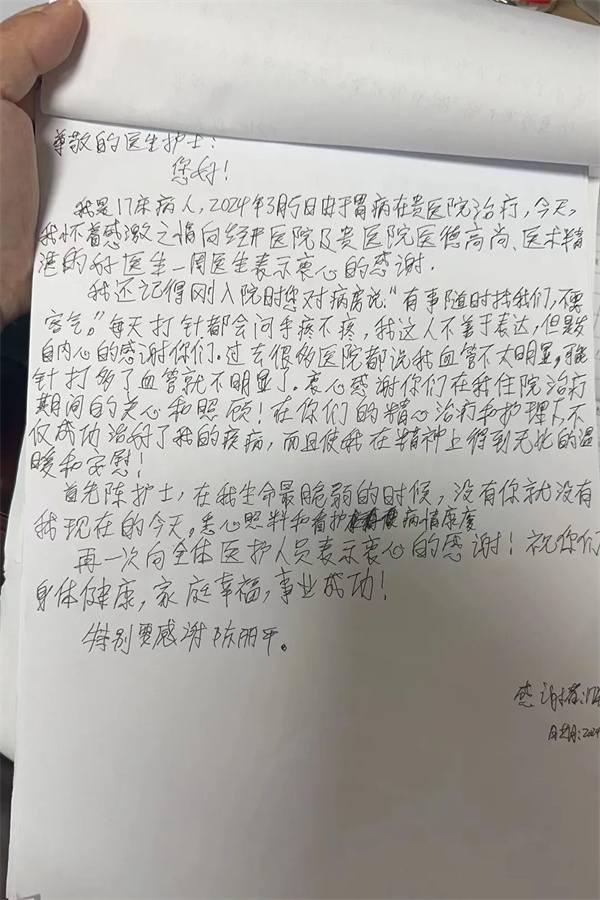 尊敬的医生护士：
您好！
我是17床病人，2024年3月5日由于胃病在贵医院治疗，今天，
我怀着感激之情向经开医院及贵医院医德高尚、医术精
湛的好医生一周医生表示衷心的感谢．
我还记得刚入院时您对病房说"有事随时找我们，不要
客气。"每天打针都会问手疼不疼，我这人不善于表达，但是发
自内心的感谢你们．过去很多医院都说我血管不太明显，
针打多了血管就不明显了．衷心感谢你们在我住院治疗
期间的关心和照顾！在你们的精心治疗和护理下，不
仅成功治好了我的疾病，而且使我在精神上得到无比的温
暖和安慰！
首先陈护士，在我生命最脆弱的时候，没有你就没有
我现在的今天。悉心照料和看护 病情康复
再一次向全体医护人员表示衷心的感谢！祝你们
身体健康，家庭幸福，事业成功！
特别要感谢陈丽平。
感谢者：17
日期：2024